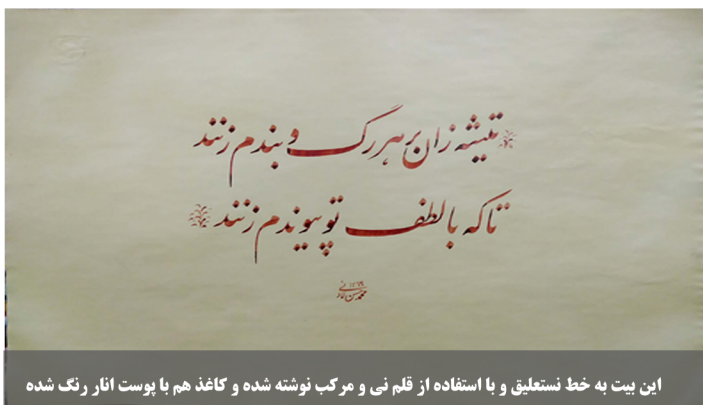 تیشه زان بر هر رگ و بندم زنند
تا که با لطف تو پیوندم زنند
این بیت به خط نستعلیق و با استفاده از قلم نی و مرکب نوشته شده و کاغذ هم با پوست انار رنگ شده